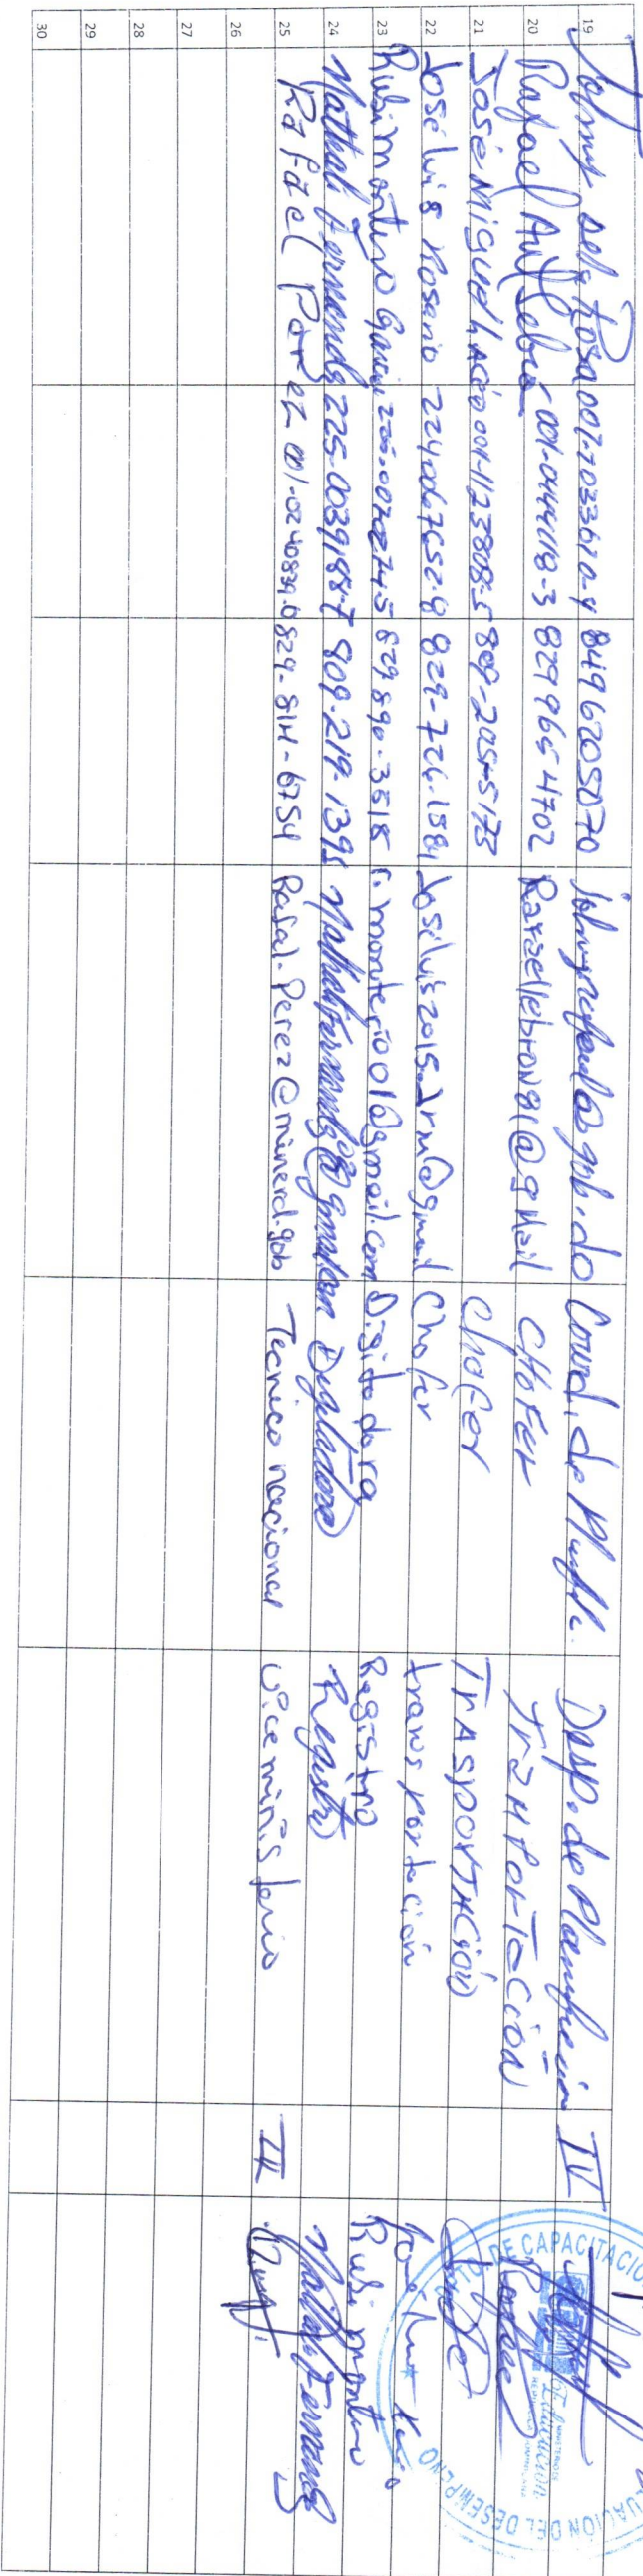 19 Johnny de la Rosa 001-1033610-4 8496205070 Coord. de Planif. Desp. de Planificación IV
20 Rafael 001-0444118-3 829 965 4702 Rafaellebron81@gmail CHOFER TranPortación
21 José Miguel 001-1123808-5 809-205-5173 chofer TrASPOrTACión
22 José luis Rosario 224-0067652-8 829-726-1581 Joseluis2015.Jrm@gmail Chofer transportación Jose Luis
23 Rubi montero 829 890-3518 r.montero01@gmail.com Digitadora Registro Rubi montero
24 Nathali Fernandez 225-0039188-7 809-219-1395 Digitadora Registro Nathali Fernandez
25 Rafael Perez 001-0240839-0 829-814-6754 Rafal-Perez@minerd.gob Tecnico nacional Viceministerio III
26
27
28
29
30
DE CAPACITACION
DEL DESEMPEÑO
Educación